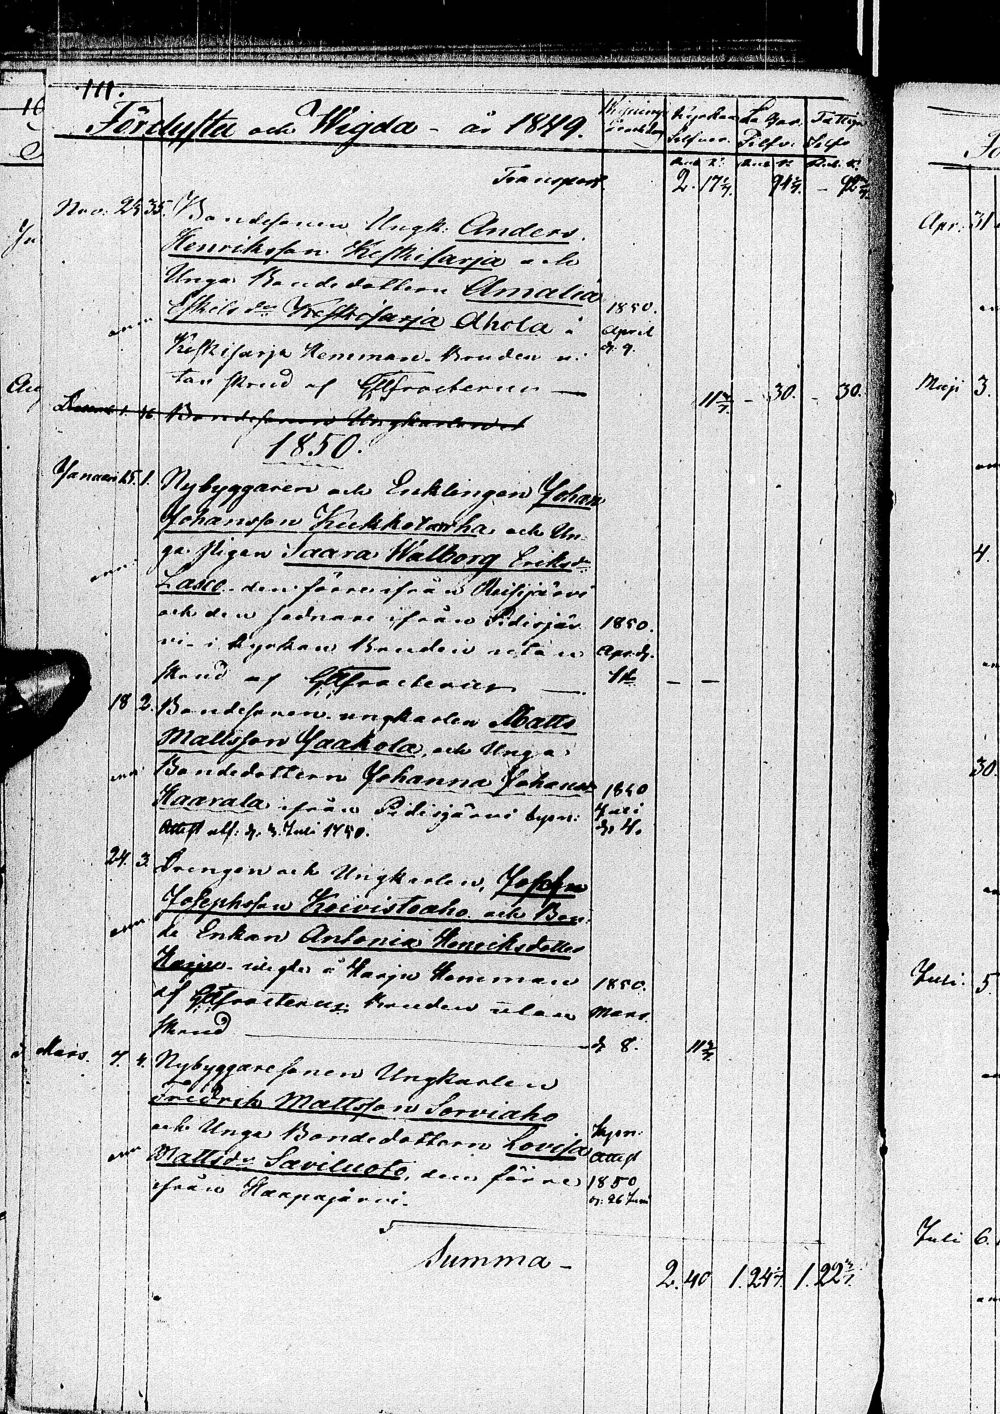 111.
Förlyfta och Wigda - år 1849.
Wignings
Kyrkan Silfver.
Transport 2. 17 1/7. 94 2/7. - 92 6/7.
Nov. 25 35. Bondesonen Ungk: Anders
Henriksson Keskisarja och
Unga Bondedottern Amalia
Eskilsdr Keskisarja Ahola å
Keskisarja Hemman. Bruden u-
tan skrud af GAFrosterus —
1850.
April
d. 9.
11 3/7. - 30. - 30.
Decemb. 1. 36 Bondesonen Ungkarlen
1850.
Januari 25. 1. Nybyggaren och Enklingen Johan
Johansson Kukkotarha och Un-
ga Pigan Saara Walborg Eriksdr
Lasco den förre ifrån Reisjärvi
och den sednare ifrån Pidisjär
vi - i kyrkan Bruden utan
skrud af GAFrosterus —
1850.
Apr. d.
— —
18 2. Bondesonen ungkarlen Matts
Mattsson Jaakola, och Unga
Bondedottern Johanna Johansdr
Haarala ifrån Pidisjärvi
Attest af d. 3. Juli 1850.
1850
Juli
d. 4.
24. 3. Drengen och Ungkarlen, Josef
Josephsson Koivistoaho och Bon-
de Enkan Antonia Henriksdotter
Harju. wigde å Harju Hemman
af GAFrosterus Bruden utan
skrud
1850.
Mars.
d 8.
11 3/7
Mars. 4. 4. Nybyggaresonen Ungkarlen
Fredrik Mattsson Sorviaho
och Unga Bondedottern Lovisa
Mattsdr Saviluoto, den förre
ifrån Haapajärvi.
Attest
1850
d. 26 Juni
Summa - 2. 40 1. 24 2/7. 1. 22 6/7.
Apr. 31
Maji 3.
4.
30.
Juli. 5.
Juli 6.